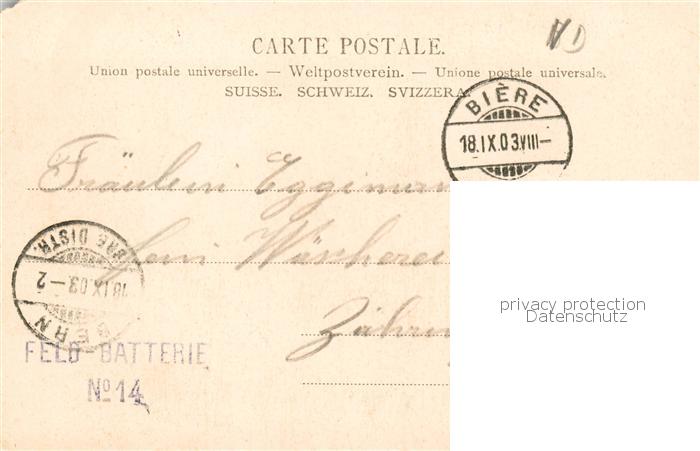 VD
CARTE POSTALE.
Union postale universelle. — Weltpostverein. — Unione postale universale.
SUISSE. SCHWEIZ. SVIZZERA.
BIÈRE
18.IX.03.VIII—
Fräulein Eggiman
Wäscherei
BRG DISTR.
18.IX.03—2
BERN
Zähri
FELD BATTERIE
No 14
privacy protection
Datenschutz